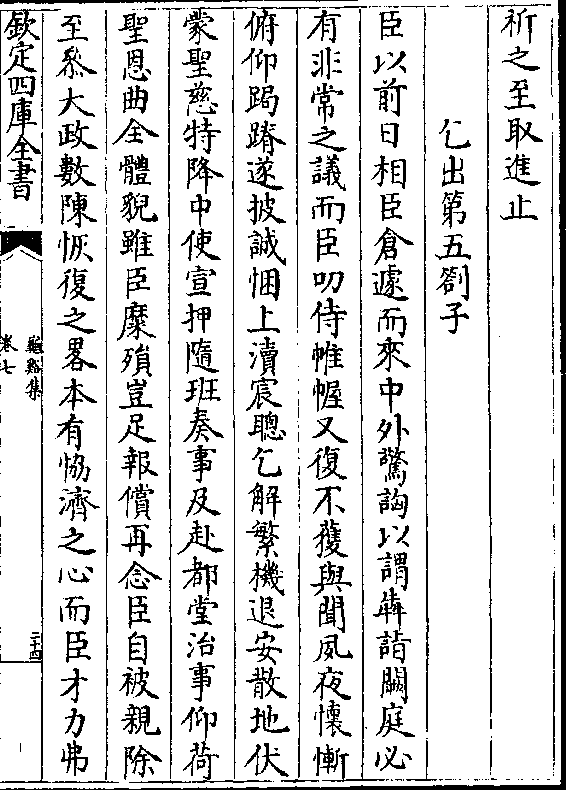 祈之至取進止
乞出第五劄子
臣以前日相臣倉遽而來中外驚訩以謂犇詣闕庭必
有非常之議而臣叨侍帷幄又復不獲與聞夙夜懷慚
俯仰跼蹐遂披誠悃上瀆宸聰乞解繁機退安散地伏
蒙聖慈特降中使宣押隨班奏事及赴都堂治事仰荷
聖恩曲全體貌雖臣糜殞豈足報償再念臣自被親除
至叅大政數陳恢復之畧本有恊濟之心而臣才力弗
欽定四庫全書
龜谿集
卷七
二十四